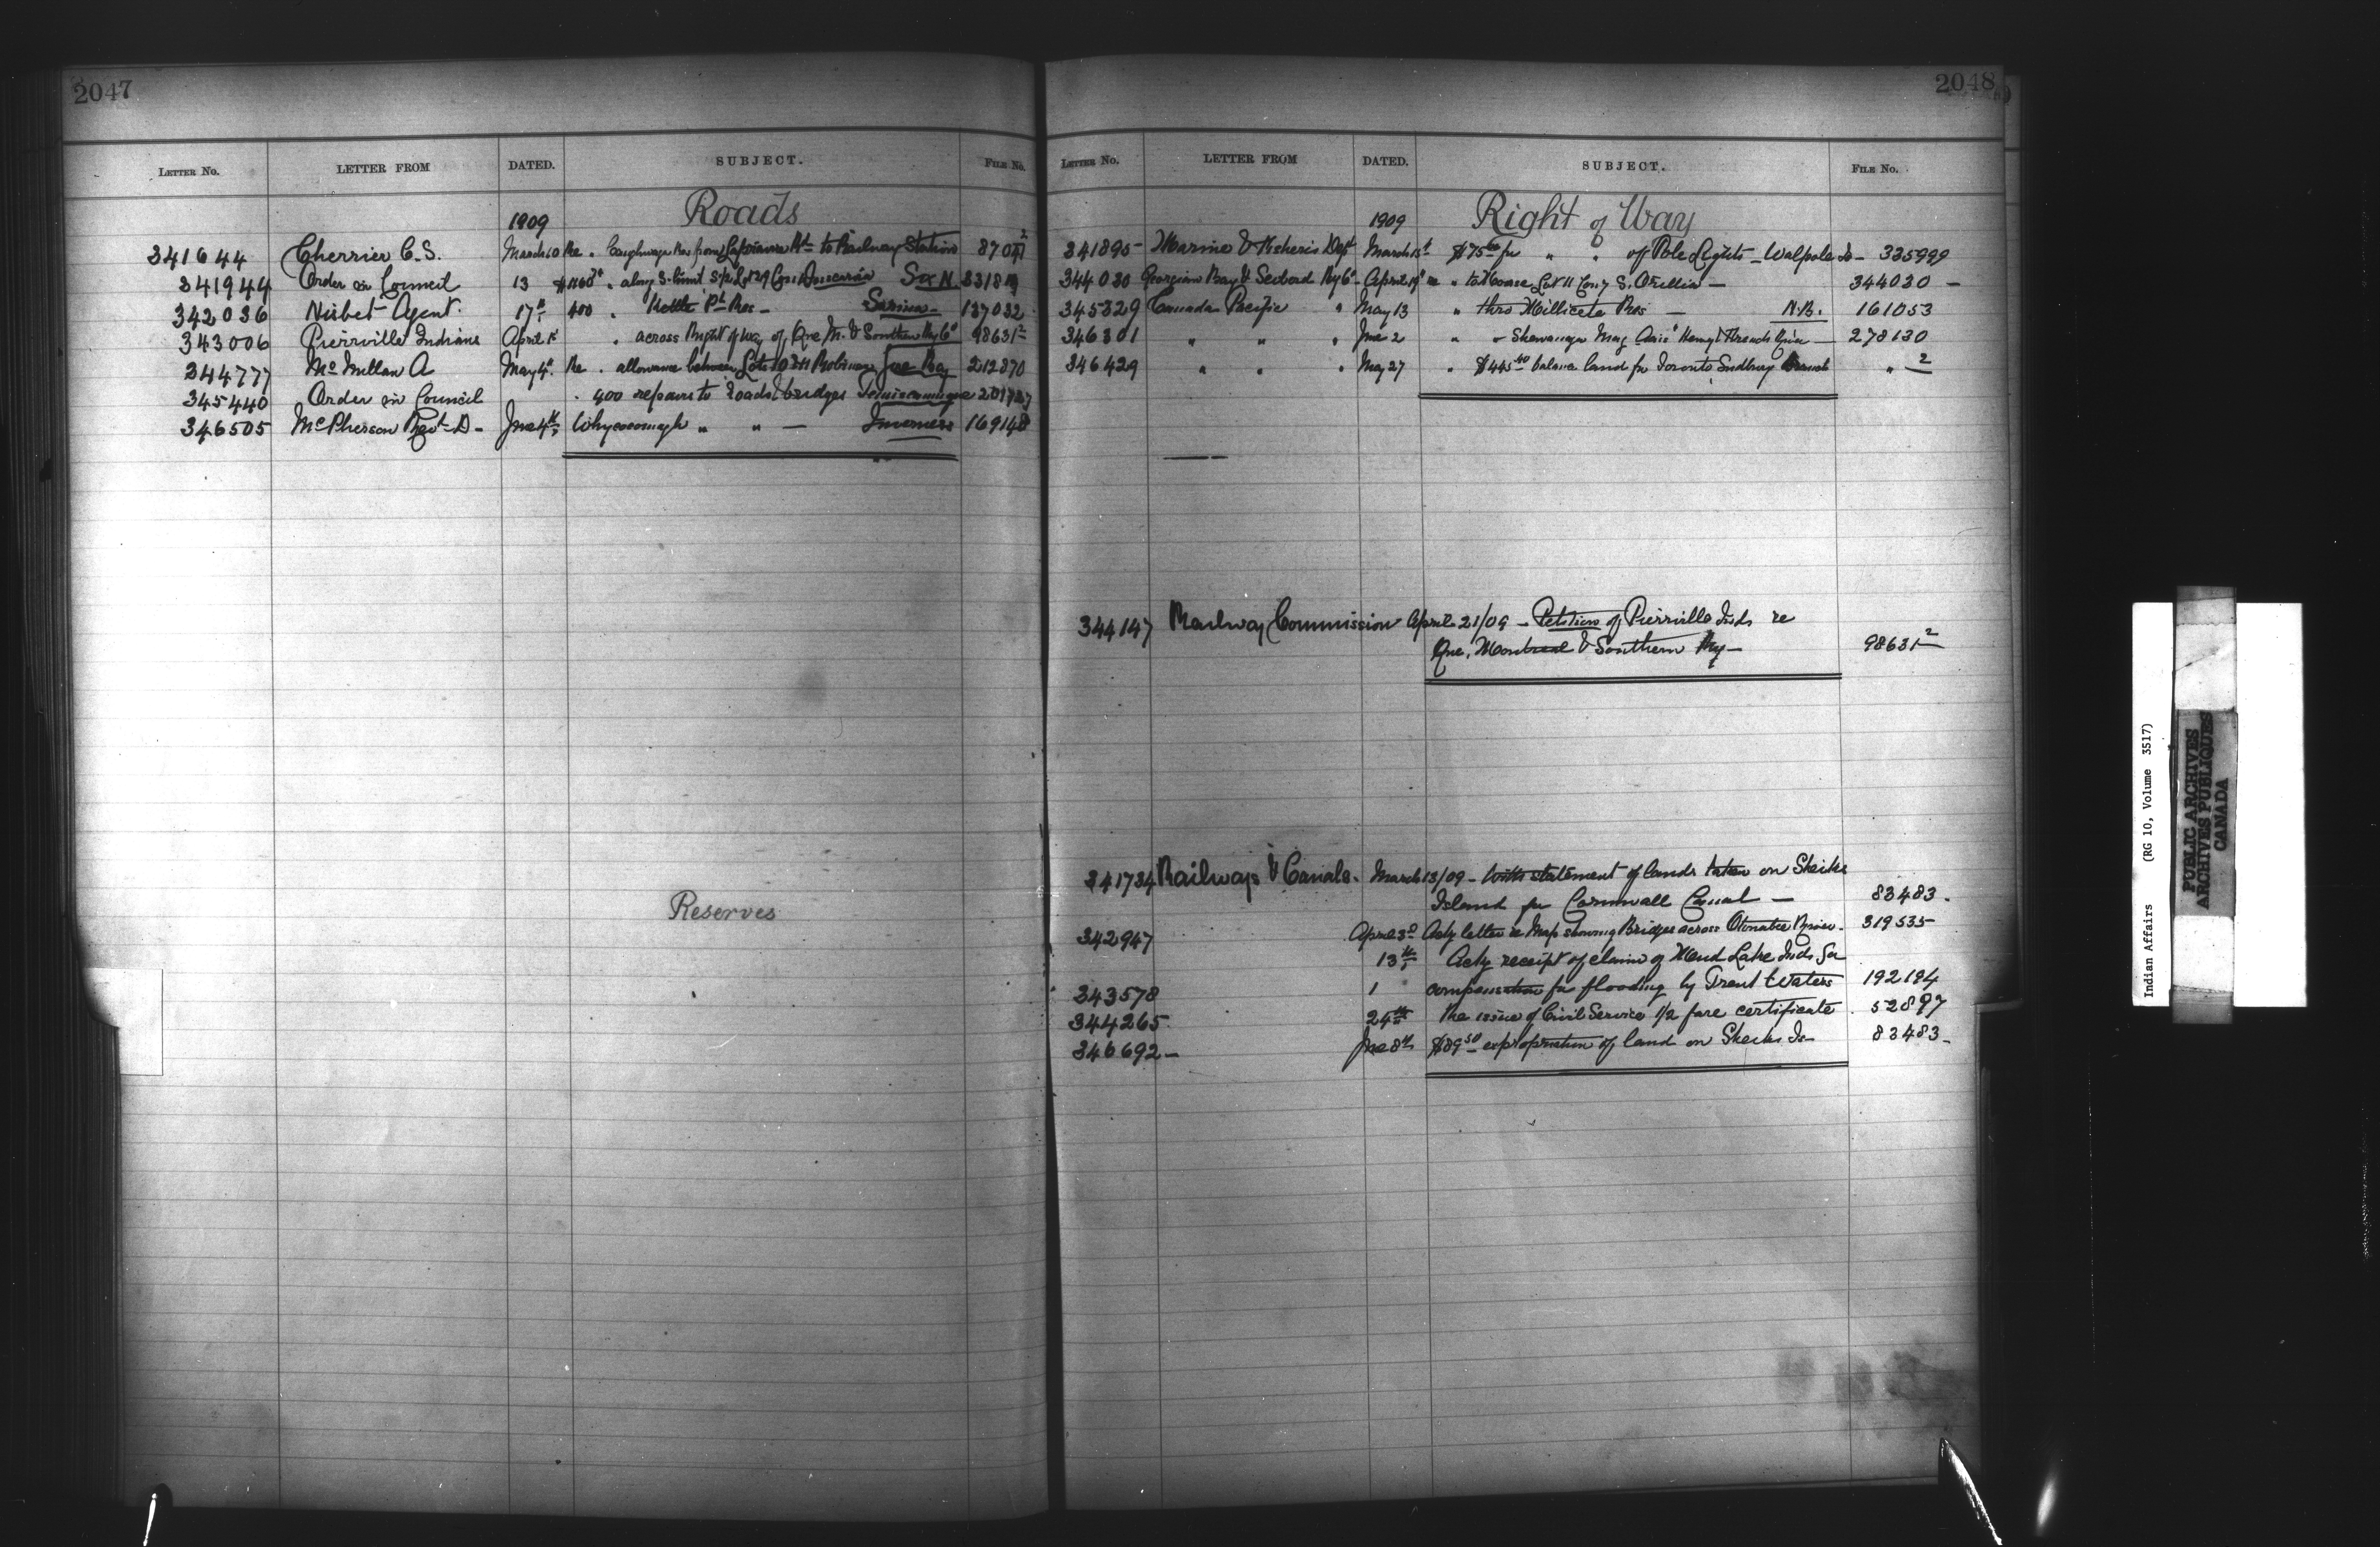 2047
LETTER No. LETTER FROM DATED. SUBJECT. FILE No.
Roads
1909
341644 Cherrier C. S. March 10 Re . Caughnawaga Res from to Railway Station 87047 2
341944 Order in Council 13 . along S. limit Sec N. 331819
342036 Nisbet Agent 17th 400 . Kettle Pt Res - Sarnia - 137032
343006 Pierrville Indians April 1st . across Right of Way of Que M. & Southern Ry Co 98631-2
344777 Mc Millan A May 4th Re . allowance between Lots 10 & 11 Robinson 212870
345440 Order in Council . 400 repairs to Roads & bridges Temiscamingue
346505 McPherson Revd D - June 4th, Whycocomagh " " — Inverness 169148
Reserves
2048
LETTER No. LETTER FROM DATED. SUBJECT. FILE No.
1909 Right of Way
341895 Marine & Fisheries Dept March 15th $75.00 for " " of Pole Lights - Walpole Is - 335999
344030 Georgian Bay & Seaboard Ry Co - April 19th re " to House Lot 11 Con 7 S. Orillia — 344030 -
345329 Canada Pacific " May 13 " thro Millicete Res — N.B. 161053
346301 " " " June 2 " - Shawanaga Mag. Henvy & French River — 278130
346429 " " " May 27 " $445.40 balance land for Toronto Sudbury Branch " 2
344147 Railway Commission April 21/09 - Petition of Pierrville Inds re
Que. Montreal & Southern Ry — 98631-2
341734 Railways & Canals. March 13/09 - With statement of lands taken on Sheiks
Island for Cornwall Canal — 83483.
342947 April 3d Ackg letter re Map showing Bridges across Otonabee River. 319535
13th, Ackg receipt of claim of Mud Lake Inds for
343578 1 compensation for flooding by Trent Waters 192194
344265 24th Re issue of Civil Service 1/2 fare certificate . 52897
346692 - June 8th $89.50 expropriation of land on Sheiks Is - 83483 -
Indian Affairs (RG 10, Volume 3517)
PUBLIC ARCHIVES
ARCHIVES PUBLIQUES
CANADA